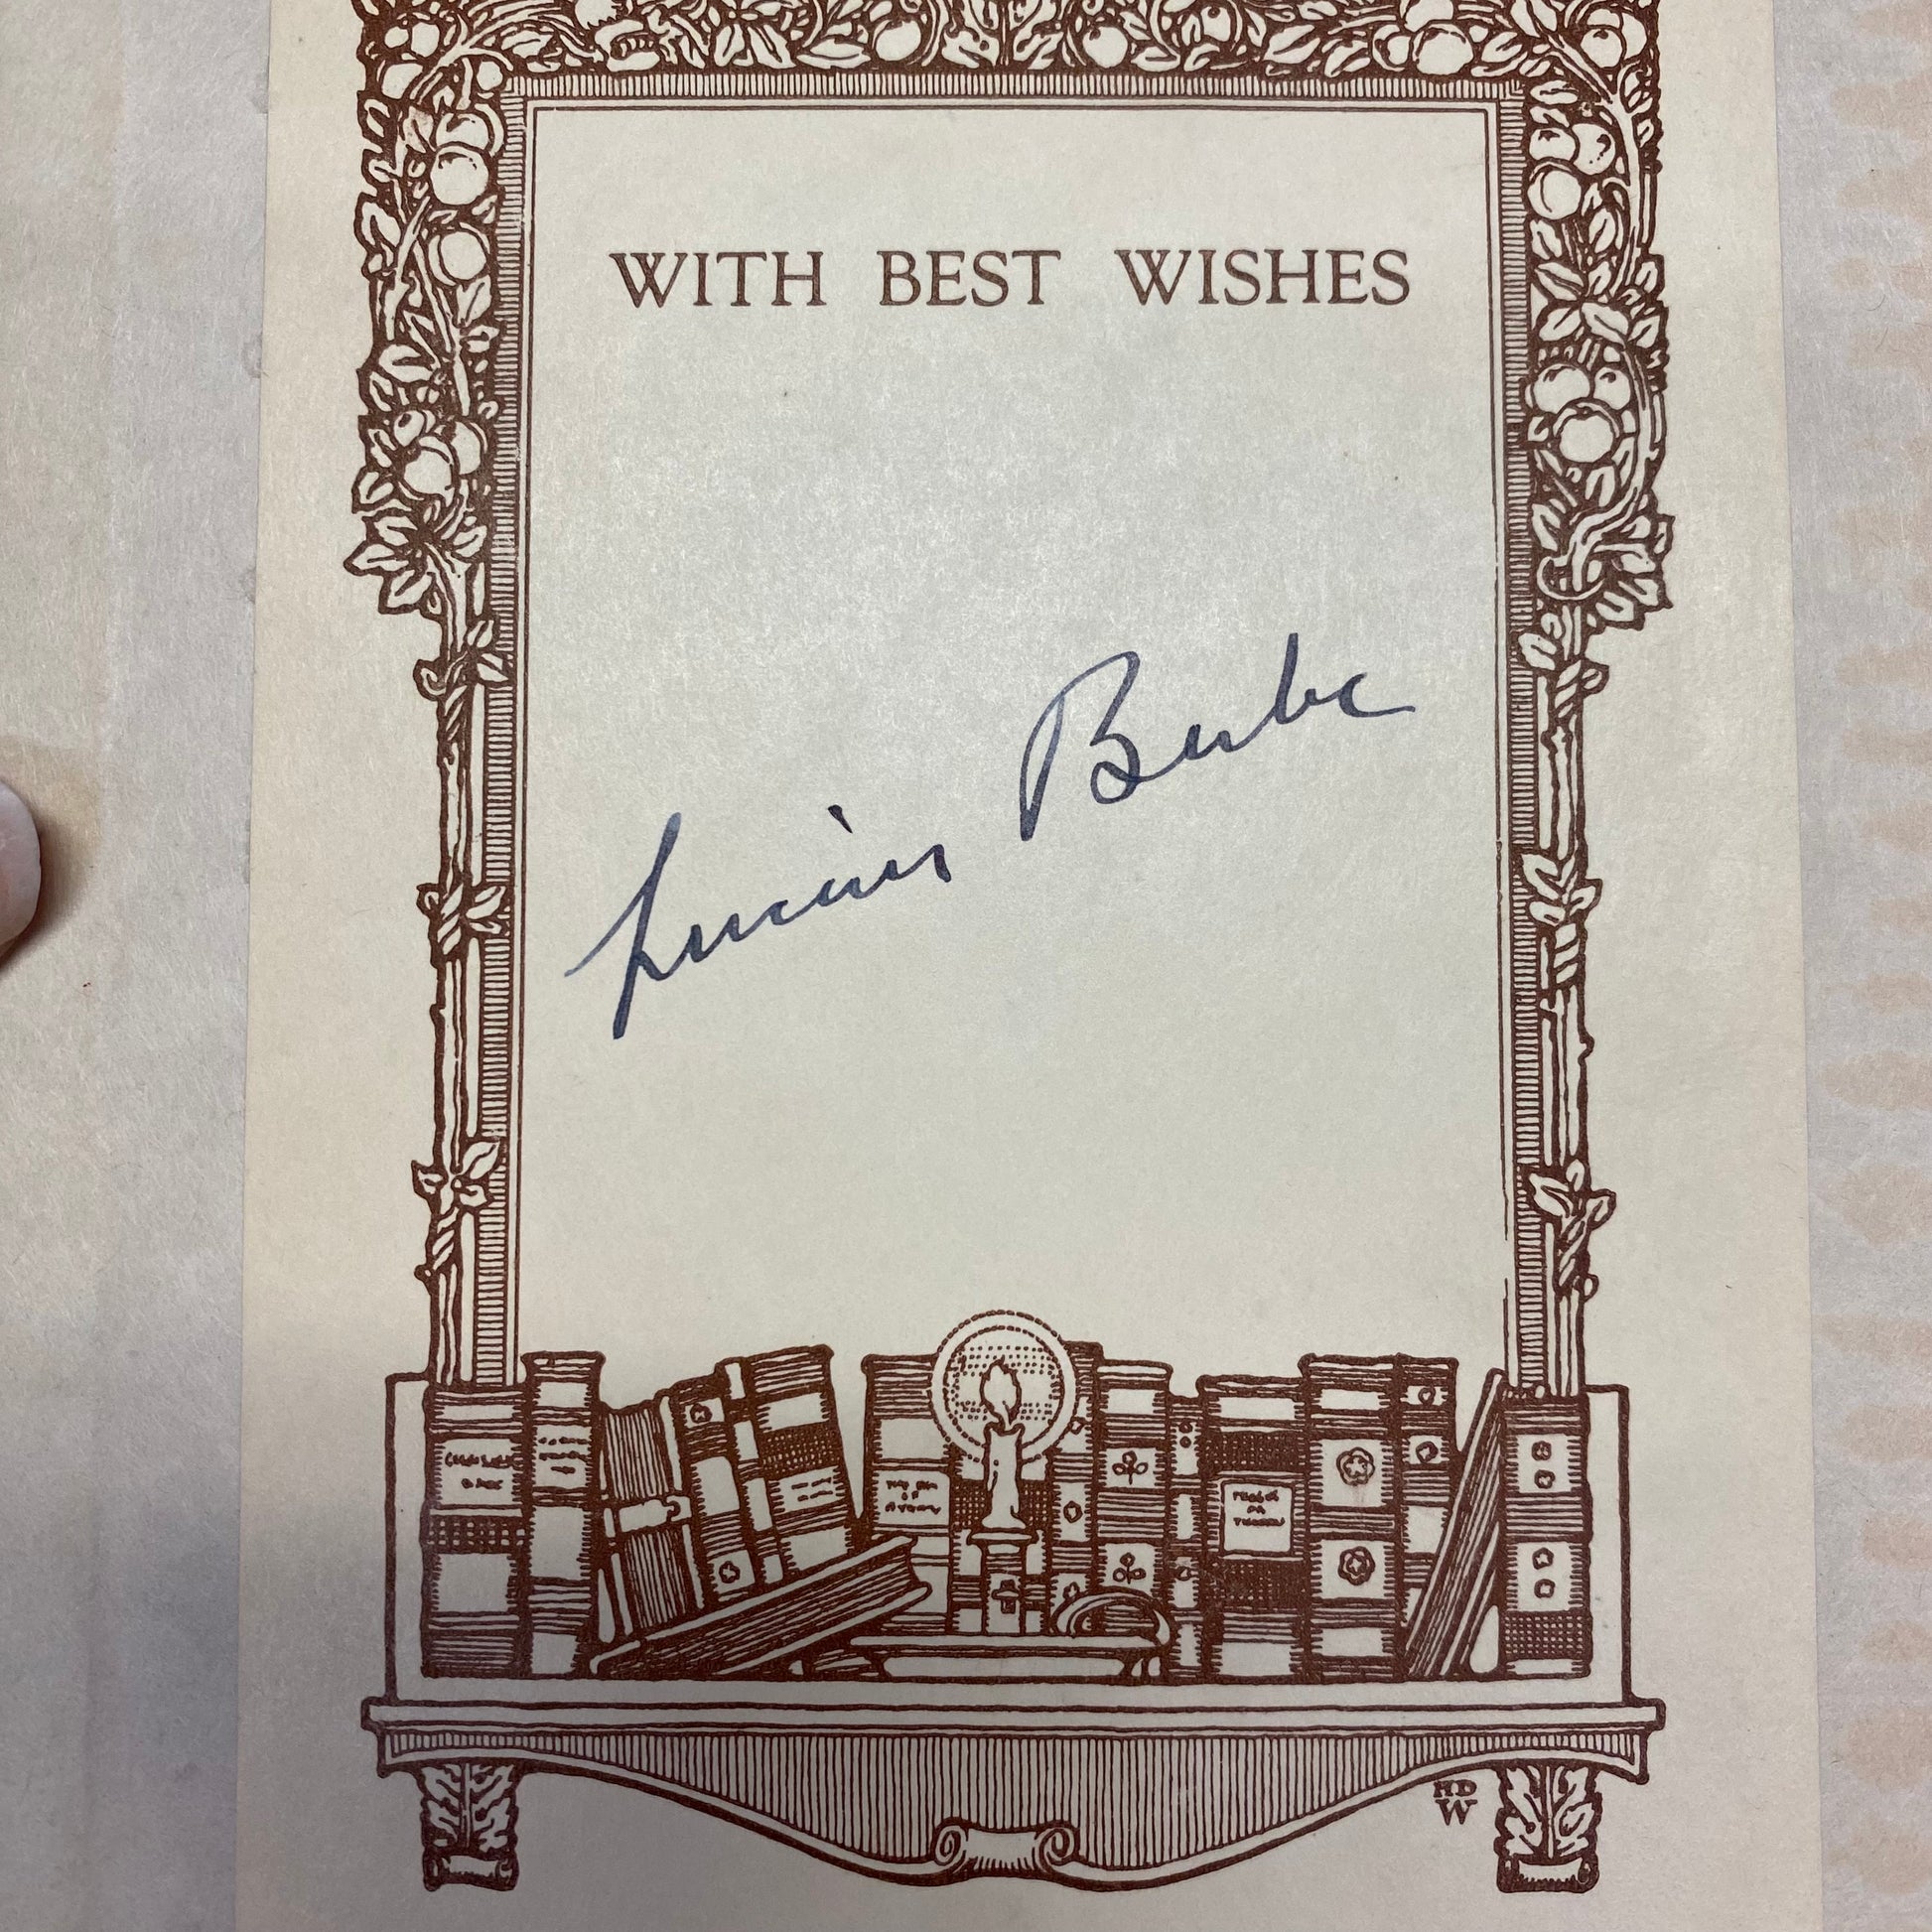 WITH BEST WISHES
Lucius Beebe
HD
W